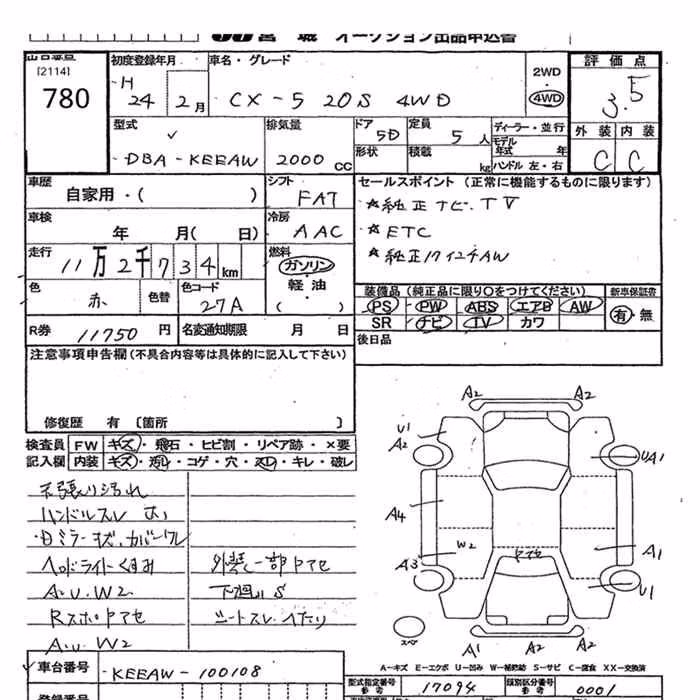 宮城 オークション出品申込書
出品番号
[2114]
780
初度登録年月
H
24 2月
車名・グレード
CX-5 20S 4WD
2WD
4WD
評価点
3.5
型式
DBA-KEEAW
排気量
2000 CC
ドア
5D
形状
定員
5人
積載
kg
ディーラー・並行
モデル年式 年
ハンドル 左・右
外装 内装
C C
車歴
自家用・( )
シフト
FAT
車検
年 月( 日)
冷房
AAC
走行
11万2千734km
燃料
ガソリン
軽・油
( )
色
赤
色替
色コード
27A
R券 11750円
名変通知期限 月 日
セールスポイント (正常に機能するものに限ります)
☆純正ナビ、TV
☆ETC
☆純正17インチAW
装備品 (純正品に限り○をつけてください)
新車保証書
PS PW ABS エアB AW
SR ナビ TV カワ
有・無
後日品
注意事項申告欄 (不具合内容等は具体的に記入して下さい)
修復歴 有 〔箇所 〕
検査員記入欄
FW キズ・飛石・ヒビ割・リペア跡・×要
内装 キズ・汚れ・コゲ・穴・スレ・キレ・破レ
天張り汚れ
ハンドルスレ
ヘッドライトくすみ
外装一部アセ
A.U.W2
下廻りS
シートスレ、ヘタリ
A.U W2
A2 A2
U1
A2
UA1
A4
A3
W2
アセ
A1
U1
A1 A2 A2
スペア
A-キズ E-エクボ U-凹み W-補修跡 S-サビ C-腐食 XX-交換済
車台番号
KEEAW-100108
型式指定番号
参考
17094
類別区分番号
参考
0001
登録番号